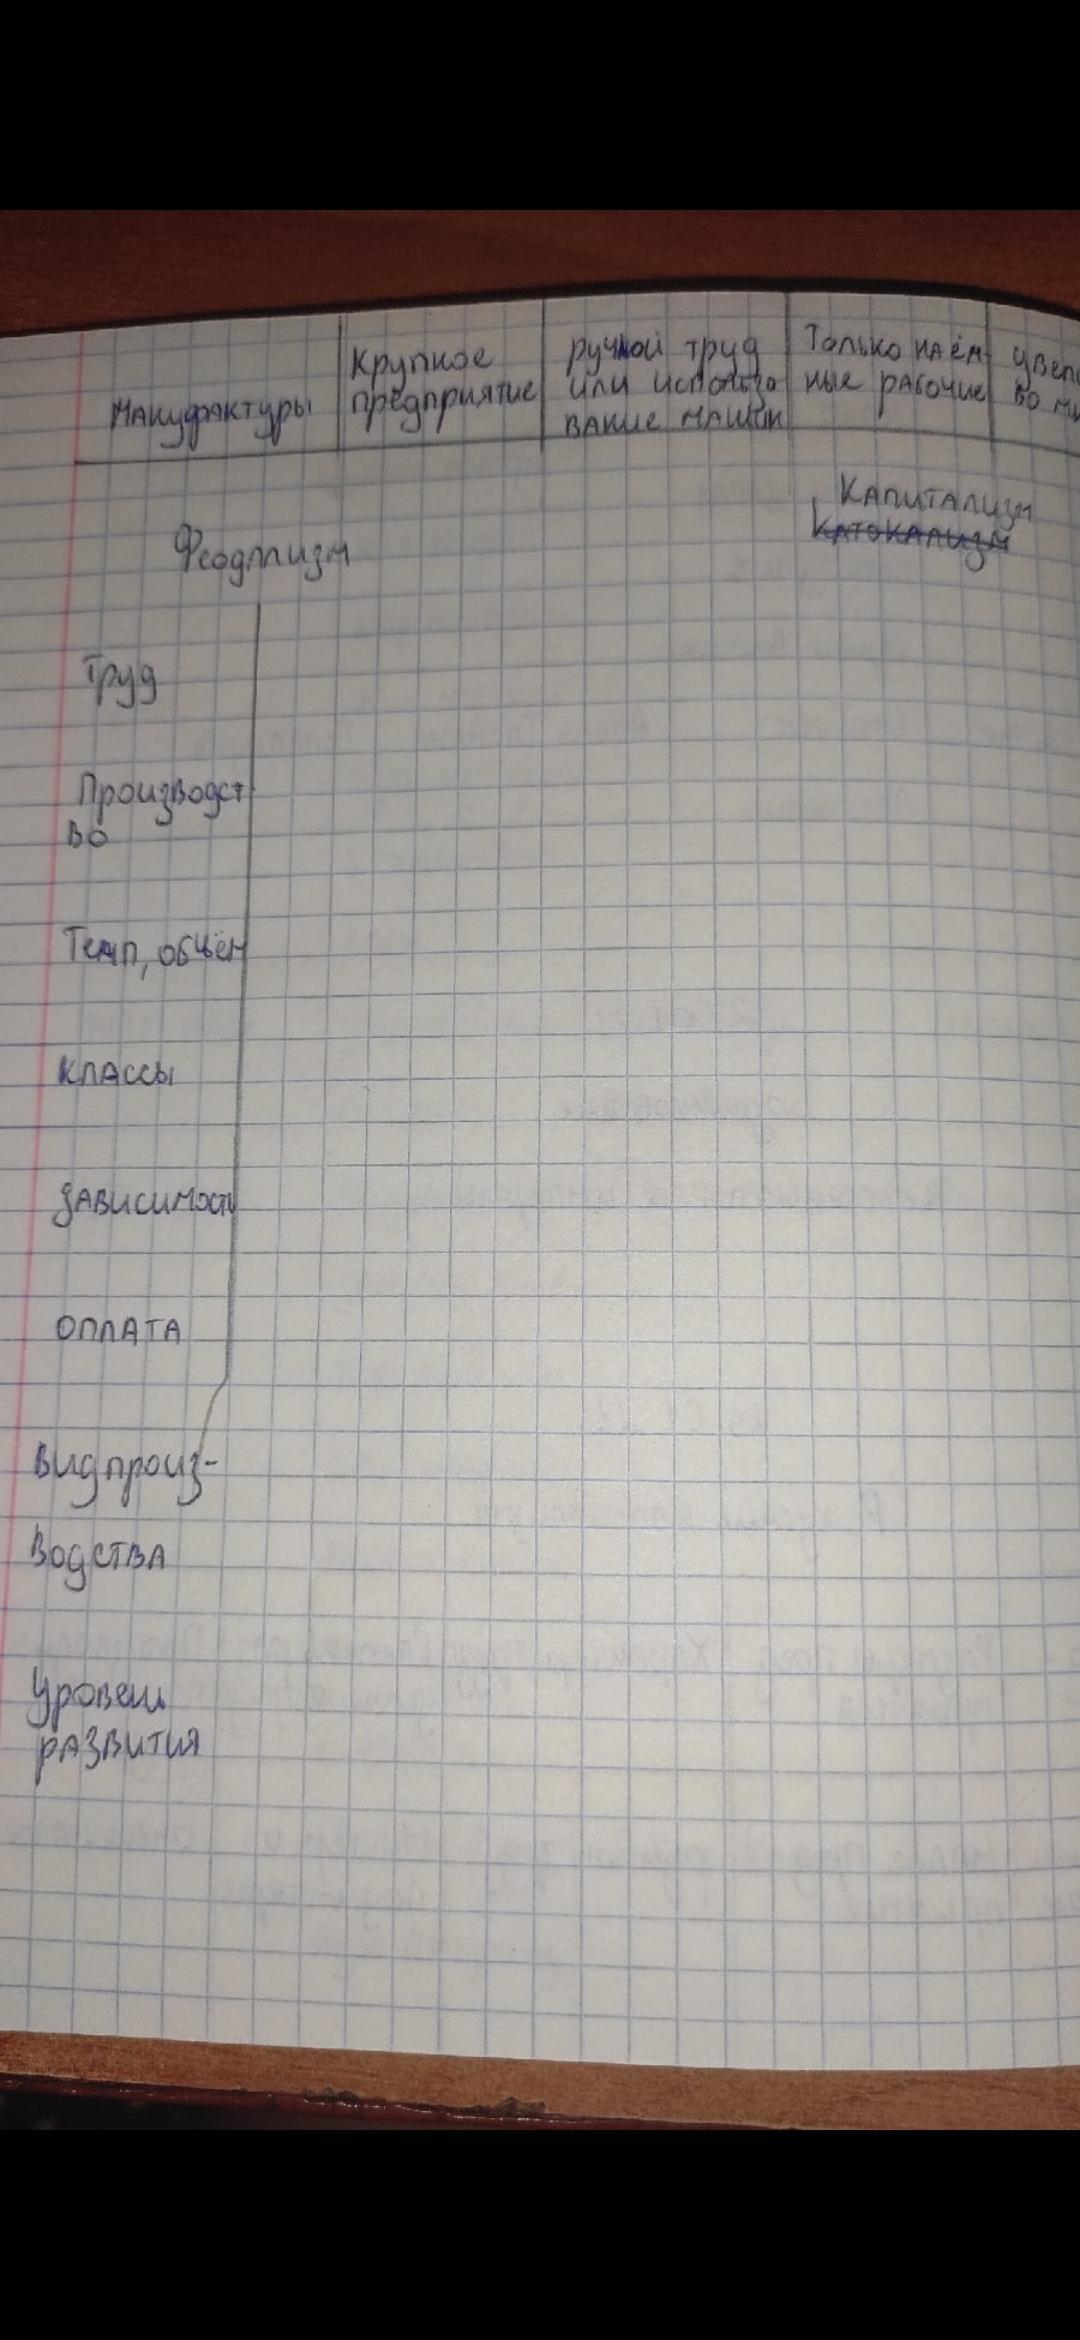 Мануфактуры
Крупное
предприятие
ручной труд
или использо
вание машин
Только наём
ные рабочие
Капитализм
Катокализм
Феодализм
Труд
Производст
во
Темп, объём
Классы
Зависимость
Оплата
Вид произ-
водства
Уровень
развития